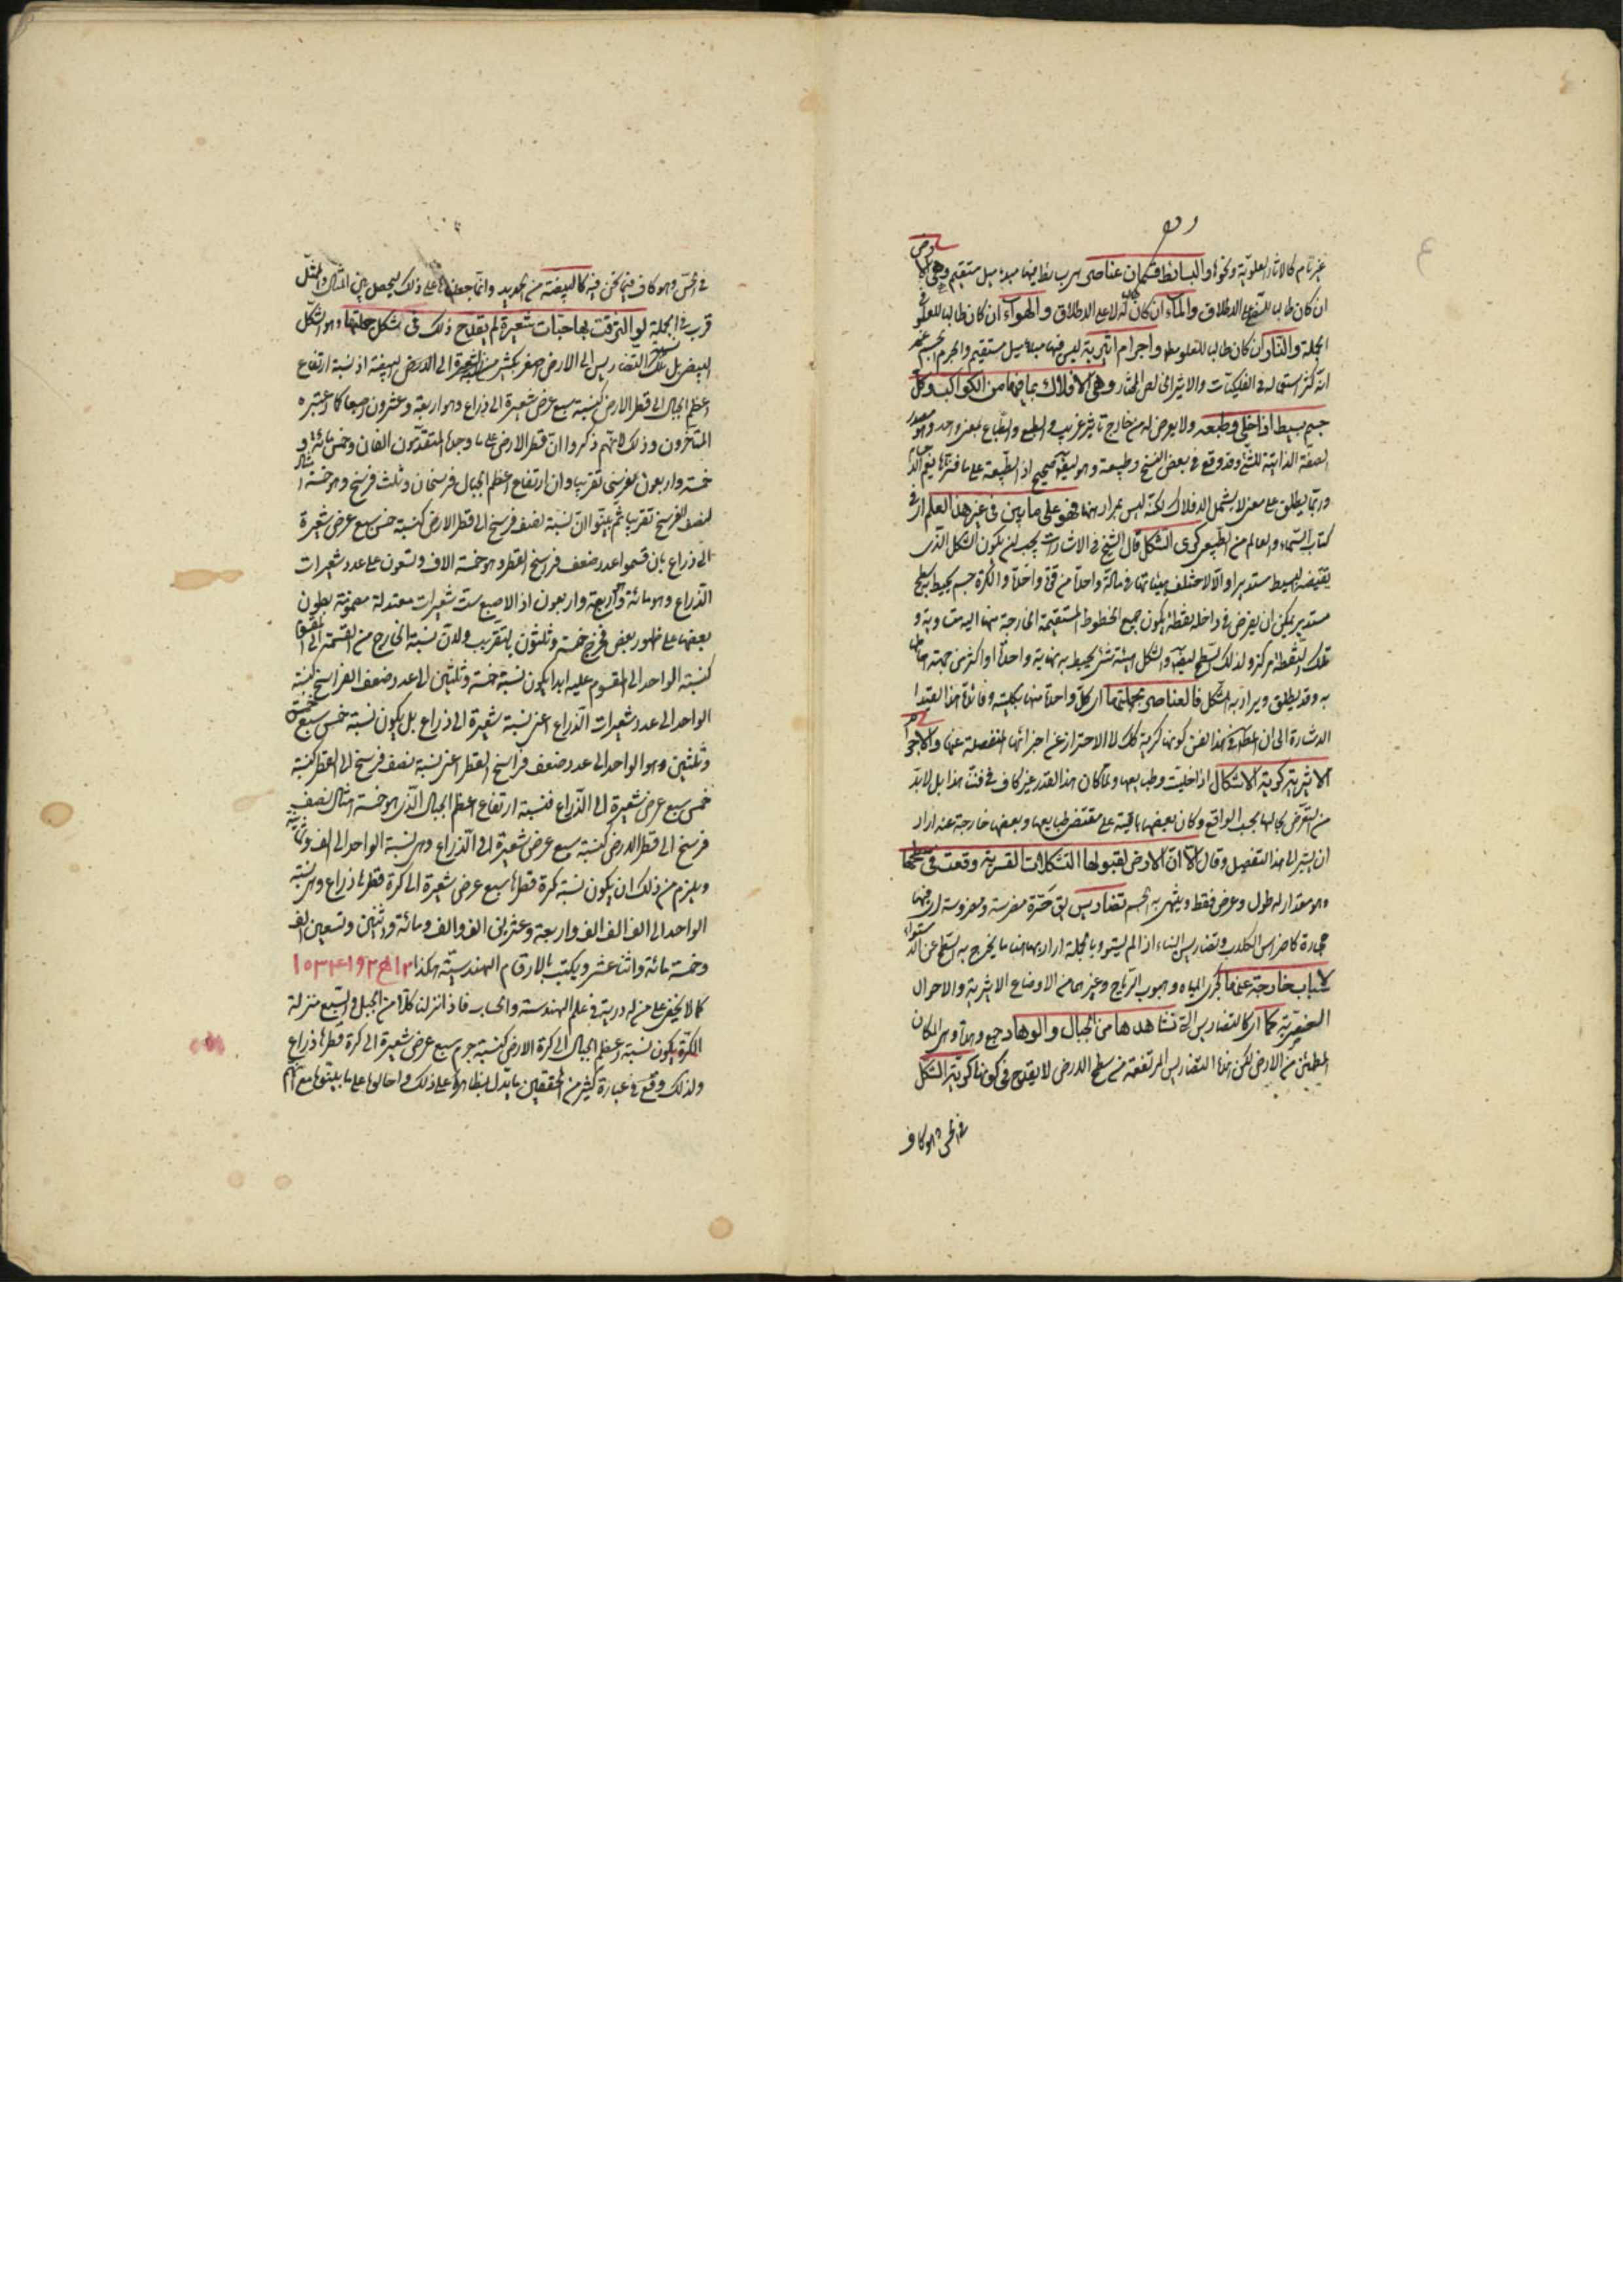 غير تام كالاثار العلوية ونحوها والبسائط قسمان عناصر هي بسائط فيها مبدء ميل مستقيم وهي الارض
ان كان طالبا للسفل على الاطلاق والماء ان كان طالبا له لا على الاطلاق والهواء ان كان طالبا للعلو في
الجملة والنار ان كان طالبا للعلو مطلقا واجرام اثيرية ليس فيها مبدء ميل مستقيم والجرم الجسم
اكثر استعماله في الفلكيات والاثير الخالص المختار وهي الافلاك بما فيها من الكواكب وكل
جسم بسيط اذا خلى وطبعه ولا يعرض له من خارج تاثير غريب والطبع والطباع بمعنى واحد وهو مصدر
الصفة الذاتية للشئ وقد وقع في بعض النسخ وطبيعته وهو ايضا صحيح اذ الطبيعة على ما
وربما يطلق على معنى لا يشمل الافلاك لكنه ليس بمراد هنا فهو على ما بين في غير هذا العلم اي في
كتاب السماء والعالم من الطبيعي كرى الشكل قال الشيخ في الاشارات يجب ان يكون الشكل الذي
يقتضيه البسيط مستديرا والا لاختلف هيئاته في مادة واحدة من قوة واحدة والكرة جسم يحيط به سطح
مستدير يمكن ان يفرض في داخله نقطة يكون جميع الخطوط المستقيمة الخارجة منها اليه متساوية و
تلك النقطة مركزه ولذلك السطح ايضا والشكل هيئة شئ يحيط به نهاية واحدة او اكثر من جهة احاطتها
به وقد يطلق ويراد به المشكل فالعناصر بجملتها اي كل واحدة منها بكليته وفائدة هذا القيد
الاشارة الى ان المطلوب في هذا الفن كونها كرية كذلك لا الاحتراز عن اجزائها المنفصلة عنها والاجرام
الاثيرية كرية الاشكال اذا خليت وطبايعها ولما كان هذا القدر غير كاف في فننا هذا بل لا بد
من التعرض بحالها بحسب الواقع وكان بعضها باقية على مقتضى طبايعها وبعضها خارجة عنه اراد
ان يشير الى هذا التفصيل وقال الا ان الارض لقبولها التشكلات القسرية وقعت في سطحها
وهو مقدار له طول وعرض فقط وينتهي به الجسم تضاريس يق حرة مضرسة ومضروسة اي فيها
حجارة كاضراس الكلاب وتضاريس البناء اذا لم يستو وبالجملة اراد بها هنا ما يخرج به السطح عن الاستواء
لاسباب خارجة عنها كجري المياه وهبوب الرياح وغيرهما من الاوضاع الاثيرية والاحوال
العنصرية كما اي كالتضاريس التي نشاهدها من الجبال والوهاد جمع وهدة وهي المكان
المطمئن من الارض لكن هذه التضاريس المرتفعة من سطح الارض لا يقدح في كونها كرية الشكل
في الحس وهو كاف
في الحس وهو كاف فيما نحن فيه كالبيضة من الحديد وانما جعلناها على ذلك ليحصل بين المثال والممثل
قرب في الجملة لو الزقت بها حبات شعيرة لم يقدح ذلك في شكل جملتها وهو الشكل
البيضي بل نسبة تلك التضاريس الى الارض اصغر بكثير من الشعيرة الى البيضة اذ نسبة ارتفاع
اعظم الجبال الى قطر الارض كنسبة سبع عرض شعيرة الى ذراع وهو اربعة وعشرون اصبعا كما اعتبره
المتاخرون وذلك لانهم ذكروا ان قطر الارض على ما وجده المتقدمون الفان وخمس مائة و
خمسة واربعون فرسخا تقريبا وان ارتفاع اعظم الجبال فرسخان وثلث فرسخ وهو خمسة امثال
لنصف الفرسخ تقريبا ثم بينوا ان نسبة نصف فرسخ الى قطر الارض كنسبة خمس سبع عرض شعيرة
الى ذراع بان قسموا عدد ضعف فراسخ القطر وهو خمسة الاف وتسعون على عدد شعيرات
الذراع وهو مائة واربعة واربعون اذ الاصبع ست شعيرات معتدلة مضمومة بطون
بعضها على ظهور بعض فخرج خمسة وثلثون بالتقريب ولان نسبة الخارج من القسمة الى المقسوم
كنسبة الواحد الى المقسوم عليه ابدا يكون نسبة خمسة وثلثين الى عدد ضعف الفراسخ كنسبة
الواحد الى عدد شعيرات الذراع اعني نسبة شعيرة الى ذراع بل يكون نسبة خمس سبع خمسة
وثلثين وهو الواحد الى عدد ضعف فراسخ القطر اعني نسبة نصف فرسخ الى القطر كنسبة
خمس سبع عرض شعيرة الى الذراع فنسبة ارتفاع اعظم الجبال الذي هو خمسة امثال نصف
فرسخ الى قطر الارض كنسبة سبع عرض شعيرة الى الذراع وهي نسبة الواحد الى الف وثمانية
ويلزم من ذلك ان يكون نسبة كرة قطرها سبع عرض شعيرة الى كرة قطرها ذراع وهي نسبة
الواحد الى الف الف الف واربعة وعشرين الف الف ومائة واثنين وتسعين الف
وخمسة مائة واثنا عشر ويكتب بالارقام الهندسية هكذا
كما لا يخفى على من له دربة في علم الهندسة والحساب فاذا نزلنا كلا من الجبل والسبع منزلة
الكرة يكون نسبة اعظم الجبال الى كرة الارض كنسبة جرم سبع عرض شعيرة الى كرة قطرها ذراع
ولذلك وقع في عبارة كثير من المحققين ما يدل بظاهره على ذلك واحالوها على ما بينوها مع انهم